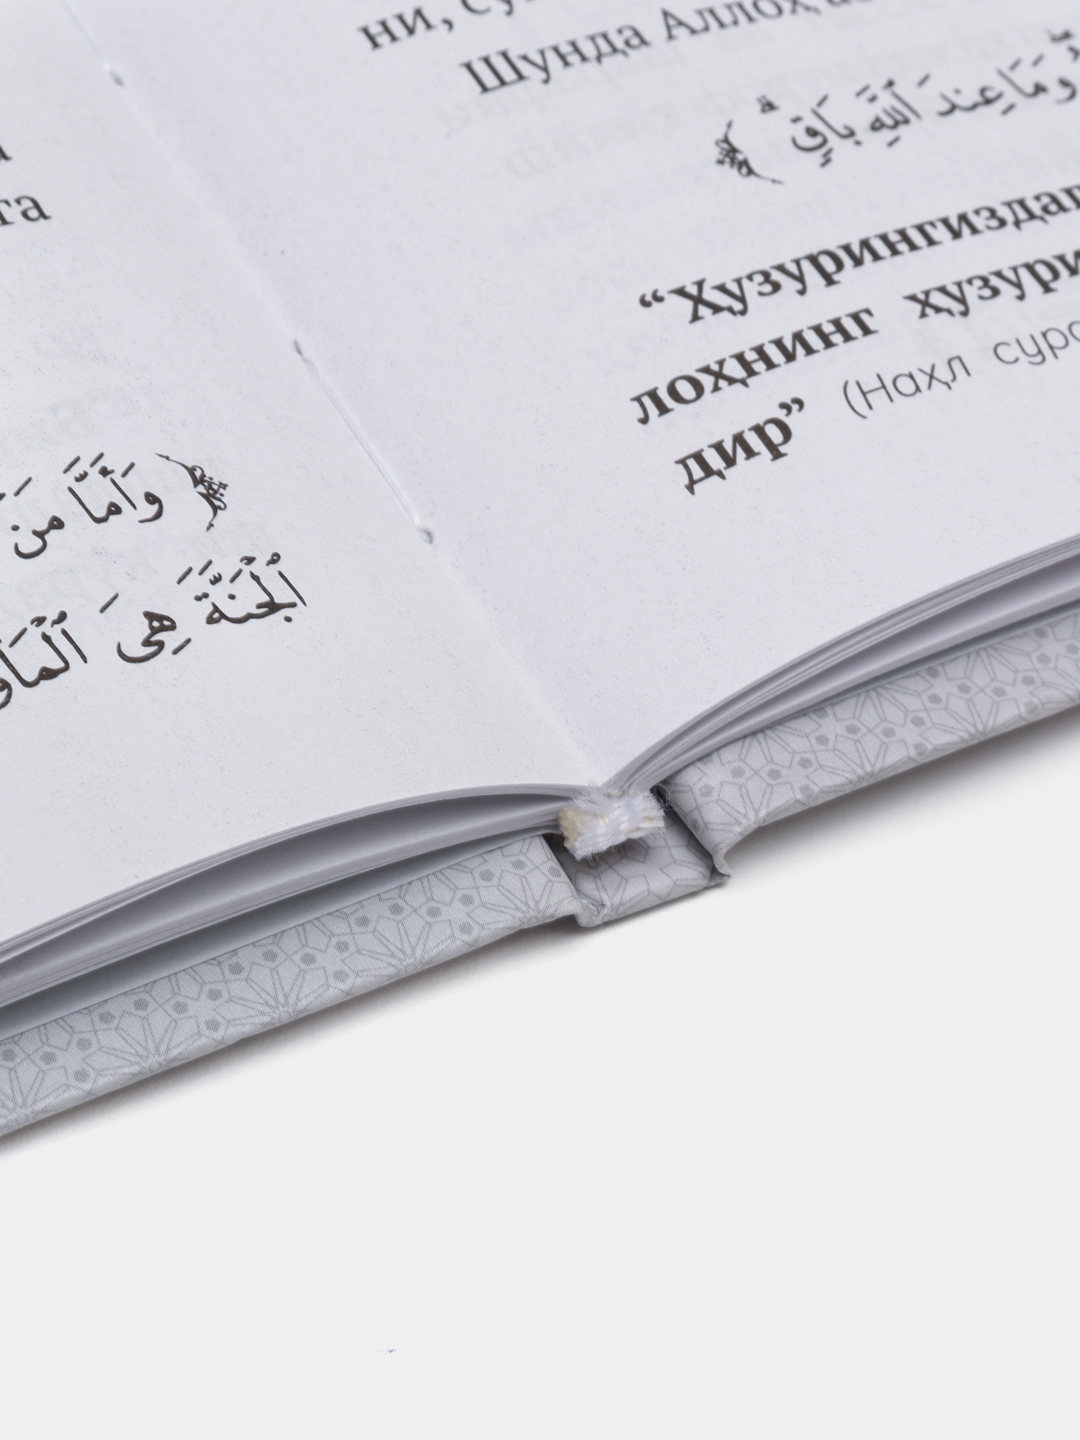 га
﴿ وَأَمَّا مَنْ
ٱلْجَنَّةَ هِىَ ٱلْمَأْو
ни, су
Шунда Аллоҳ аз
وَمَا عِندَ ٱللَّهِ بَاقٍ ۗ ﴾
“Ҳузурингиздаг
лоҳнинг ҳузури
дир” (Наҳл сура